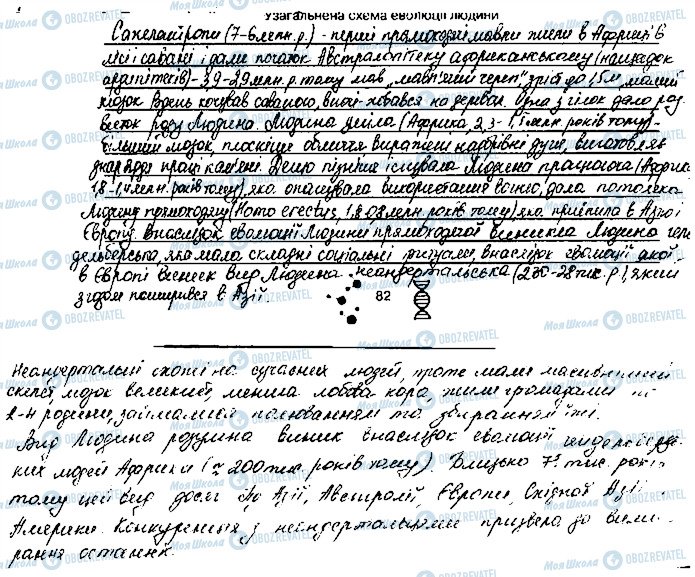 Узагальнена схема еволюції людини
Сахелантропи (7-6 млн.р.) - перші прямоходячі мавпи жили в Африці в
лісі савані і дали початок Австралопітеку африканському (нащадок
ардипітеків) - 3,9-2,9 млн.р. тому мав "мавп'ячий череп" зріст до 1,5 м, малий
мозок вдень кочував саваною, вночі ховався на деревах. Одна з гілок дала
початок роду Людина. Людина уміла (Африка, 2,3-1,5 млн. років тому)
більший мозок, плоскіше обличчя виражені надбрівні дуги, виготовляв
знаряддя праці кам'яні. Дещо пізніше існувала Людина працююча (Африка
1,8-1,4 млн. років тому), яка опанувала використання вогню, дала потомка
Людину прямоходячу (Homo erectus, 1,8 0,3 млн. років тому), яка прийшла в Азію і
Європу. Внаслідок еволюції Людини прямоходячої виникла Людина гей
дельберська, яка мала складні соціальні ритуали, внаслідок еволюції якої
в Європі виник вид Людина неандертальська (230-28 тис. р.), який
згодом поширився в Азії.
82
Неандертальці схожі на сучасних людей, проте мали масивніший
скелет, мозок великий, менша лобова кора, жили громадами
2-4 родини, займалися полюванням та збиранням їжі.
Вид Людина розумна виник внаслідок еволюції гейдельберзь
ких людей Африки (≈ 200 тис. років тому). Близько 7 тис. років
тому цей вид досяг Азії, Австралії, Європи, Східної Азії,
Америки. Конкуренція з неандертальцями призвела до вими-
рання останніх.